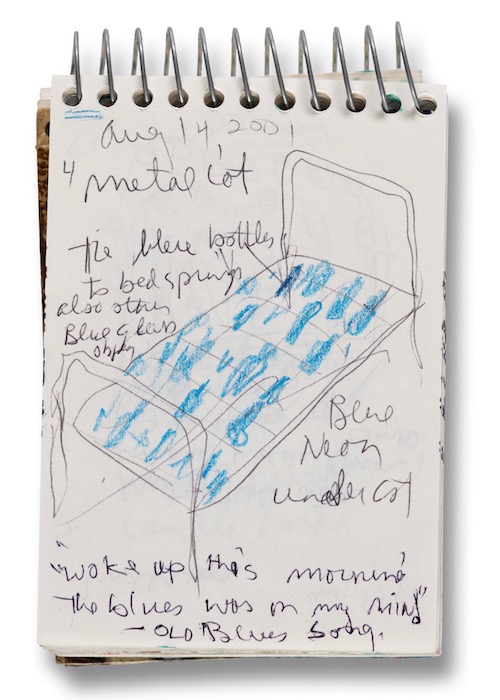 Aug 14, 2001
4 metal cot
Tie blue bottles
to bedsprings
also other
Blue glass
objs
Blue
Neon
under cot
"woke up this mornin'
the blues was on my mind"
- OLD Blues Song.